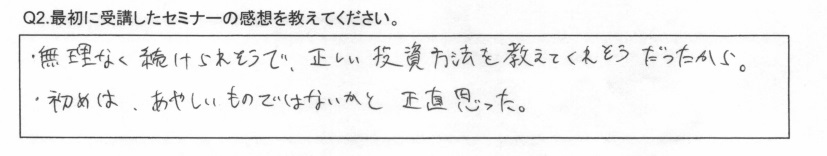 Q2.最初に受講したセミナーの感想を教えてください。
・無理なく続けられそうで、正しい投資方法を教えてくれそうだったから。
・初めは、あやしいものではないかと正直思った。